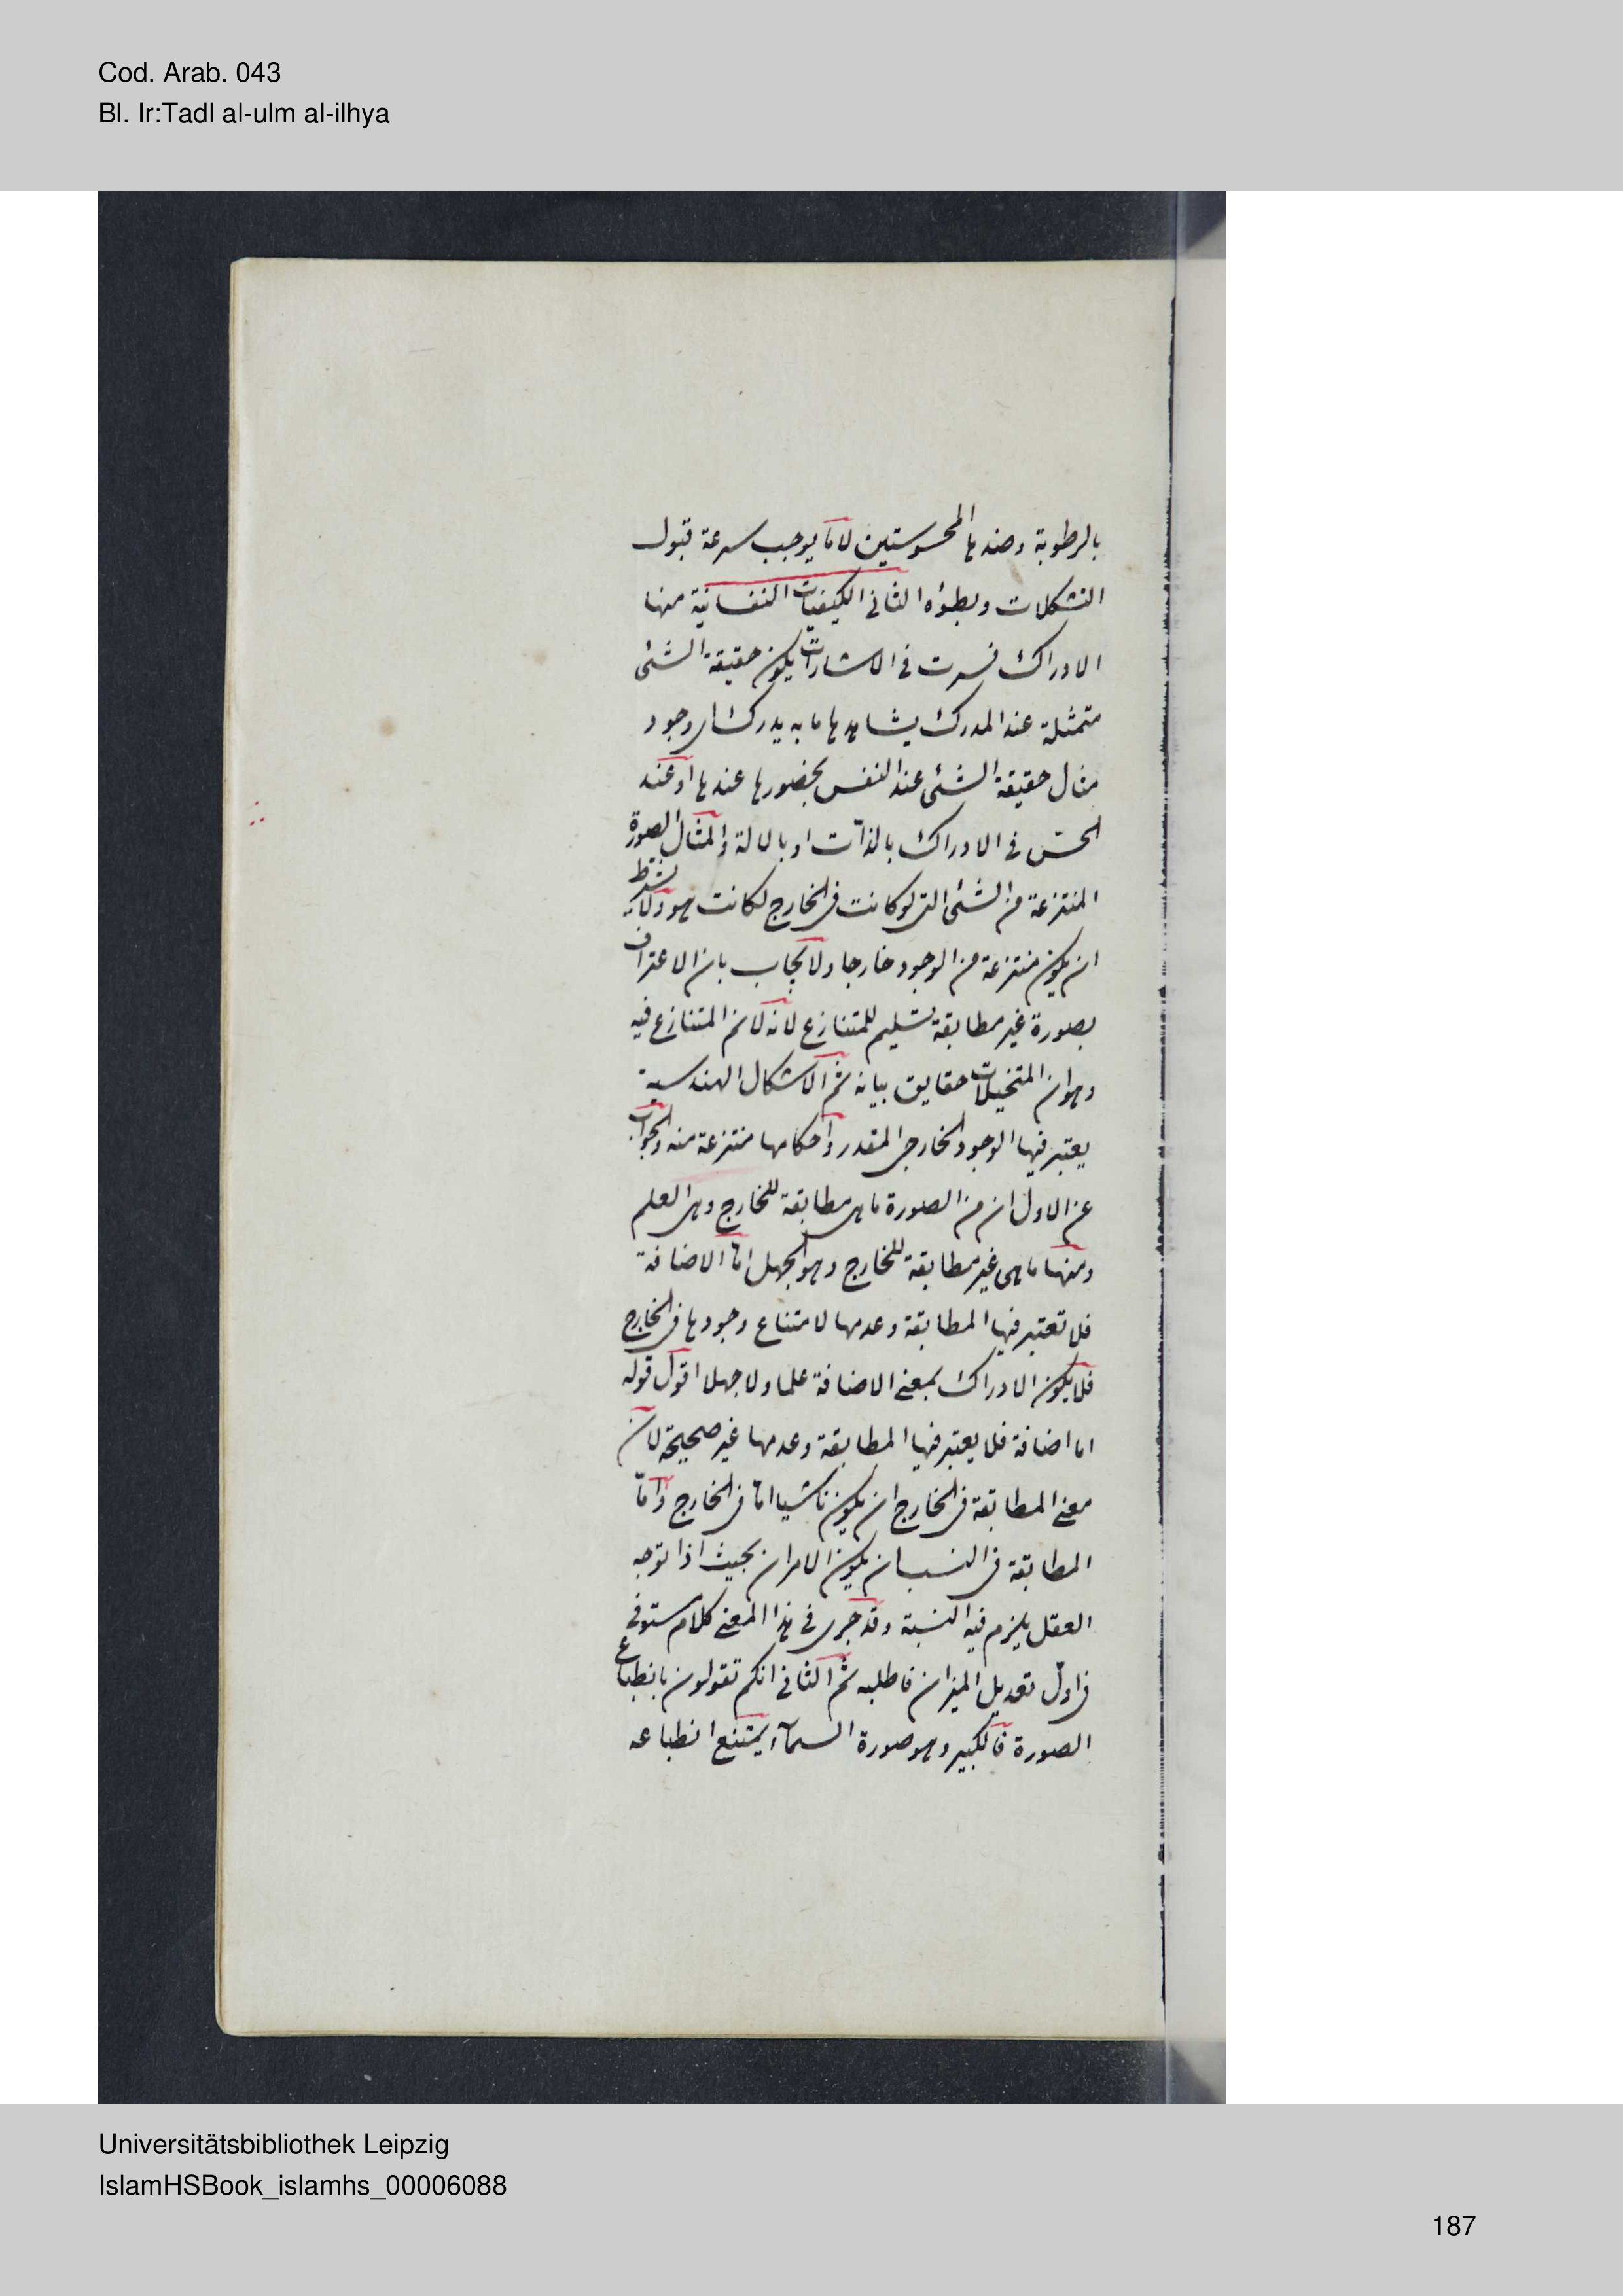 Cod. Arab. 043
Bl. Ir:Tadl al-ulm al-ilhya
بالرطوبة وضدها المحسوستين لا ما يوجب سرعة قبول
التشكلات وبطؤه الثاني الكيفيات النفسانية منها
الادراك فسرت في الاشارات بكون حقيقة الشئ
متمثلة عند المدرك يشاهدها ما به يدرك اى وجود
مثال حقيقة الشئ عند النفس بحضورها عندها او عند
الحسّ في الادراك بالذات او بالالة والمثال الصورة
المنتزعة من الشئ التى لو كانت فى الخارج لكانت هو ولا يشترط
ان يكون منتزعة من الوجود خارجا ولا يجاب بان الاعتراف
بصورة غير مطابقة تسليم للمتنازع لانه لازم المتنازع فيه
وهو ان المتخيلات حقايق بيانه ثم الاشكال الهندسية
يعتبر فيها الوجود الخارجى المقدر واحكامها منتزعة منه والجواب
عن الاول ان من الصورة ما هى مطابقة للخارج وهى العلم
ومنها ما هى غير مطابقة للخارج وهو الجهل امّا الاضافة
فلا تعتبر فيها المطابقة وعدمها لامتناع وجودها فى الخارج
فلا يكون الادراك بمعنى الاضافة علما ولا جهلا اقول قوله
اما اضافة فلا يعتبر فيها المطابقة وعدمها غير صحيحة لان
معنى المطابقة فى الخارج ان يكون ناشيا امّا فى الخارج وامّا
المطابقة فى النسب ان يكون الامران بحيث اذا توجه
العقل يلزم فيه النسبة وقد جرى فى هذا المعنى كلام مستوفى
فى اول تعديل الميزان فاطلبه ثم الثاني انكم تقولون بانطباع
الصورة فالكبير وهو صورة السمآء يمتنع انطباعه
Universitätsbibliothek Leipzig
IslamHSBook_islamhs_00006088
187